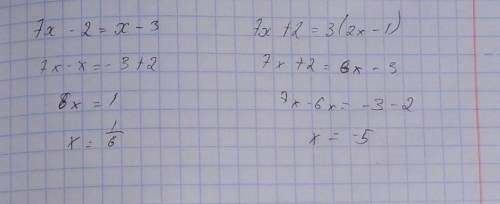 7x - 2 = x - 3
7x - x = -3 + 2
6x = 1
x = 1/6
7x + 2 = 3(2x - 1)
7x + 2 = 6x - 3
7x - 6x = -3 - 2
x = -5